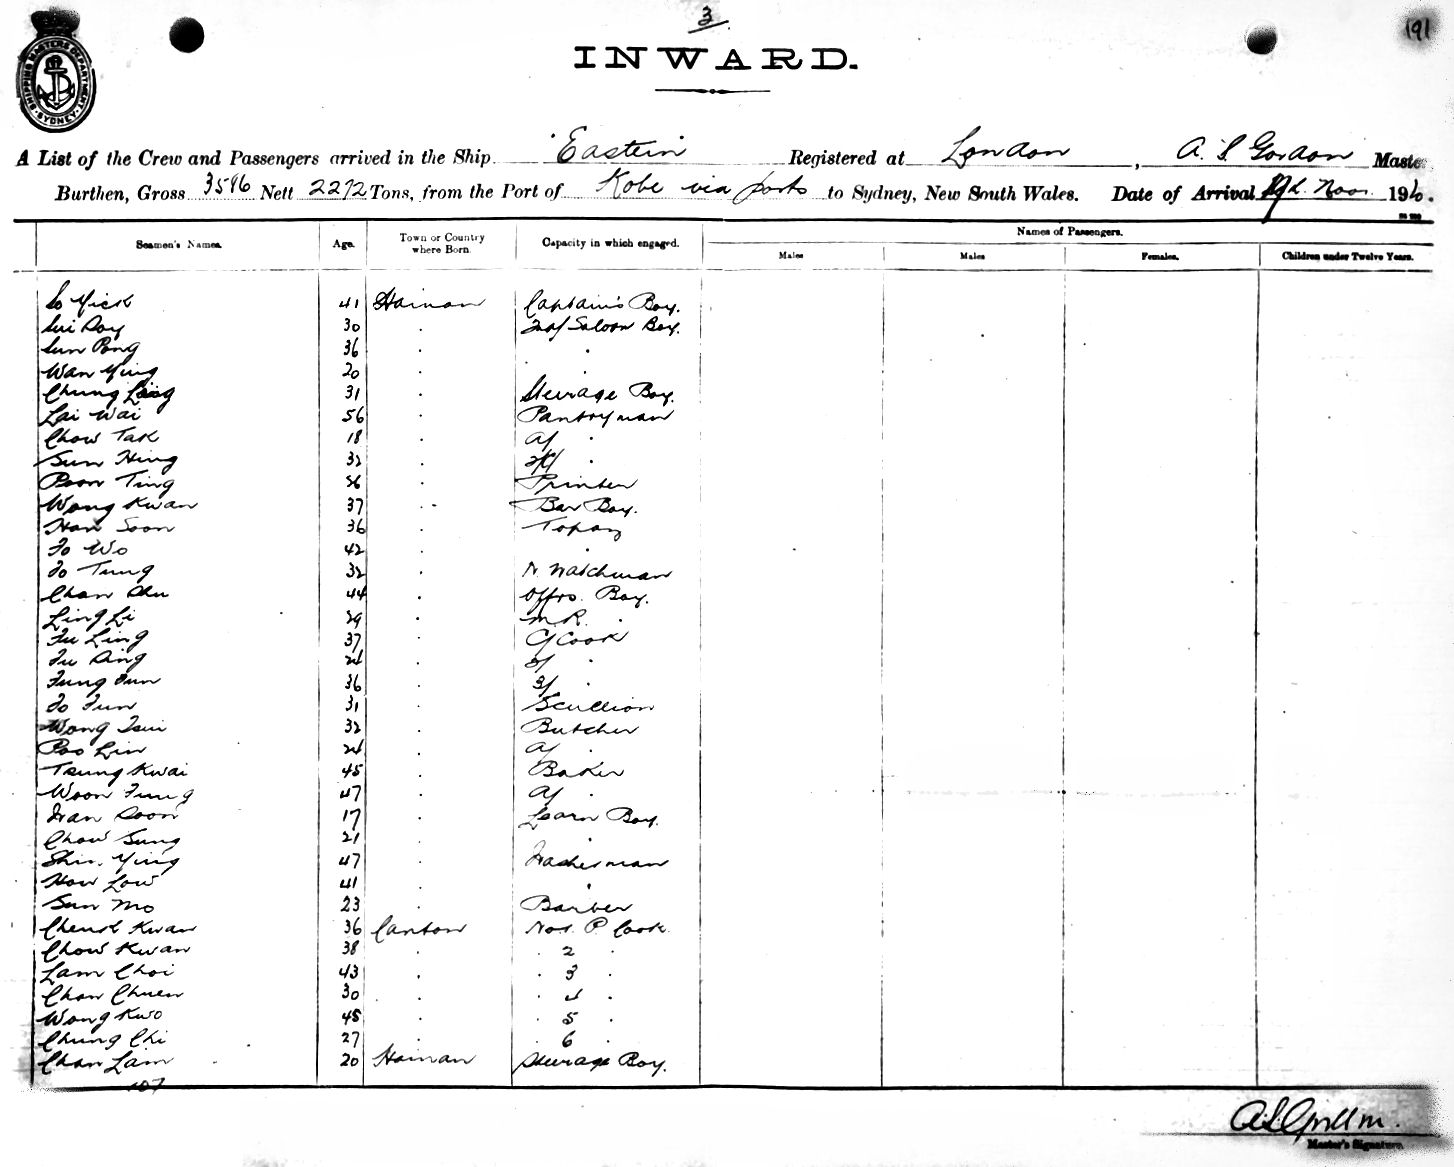 3
191
SHIPPING MASTERS DEPARTMENT SYDNEY
INWARD.
A List of the Crew and Passengers arrived in the Ship Eastern Registered at London, A. S Gordon Master
Burthen, Gross 3586 Nett 2272 Tons, from the Port of Kobe via ports to Sydney, New South Wales. Date of Arrival Novr. 19
Seamen's Names. Age. Town or Country where Born. Capacity in which engaged. Names of Passengers.
Males Males Females. Children under Twelve Years.
So Yick 41 Hainan Captain's Boy.
Sui Doy 30 . 2nd/ Saloon Boy.
Sun Pong 36 . .
Wan Ying 20 . .
Chung 31 . Steerage Boy.
Lai Wai 56 . Pantryman
Chow Tak 18 . a/ .
Sun Hing 32 . .
Poon Ting 56 . Printer
Wong Kwan 37 . Bar Boy.
Han Soon 36 . Topaz
Fo Wo 42 . .
Fo Tung 32 . N. Watchman
Chan Shu 44 . Offrs. Boy.
Ling Li 29 . M.R. .
Fu Ling 37 . C/Cook
Fu Ding 24 . 2/ .
Fung Fun 36 . 3/ .
Fo Fun 31 . Scullion
Wong Tsui 32 . Butcher
Poo Lin 24 . a/ .
Tsung Kwai 45 . Baker
Woon Fung 47 . a/ .
Wan Soon 17 . Learn Boy.
Chow Sung 21 . .
Shin Ying 47 . Washerman
How Low 41 . .
Sun Mo 23 . Barber
Cheuk Kwan 36 Canton No1. P. Cook
Chow Kwan 38 . . 2 .
Lam Choi 43 . . 3 .
Chan Chuen 30 . . 4 .
Wong Kwo 45 . . 5 .
Chung Chi 27 . . 6 .
Chan Lam 20 Hainan Steerage Boy.
107
Master's Signature.